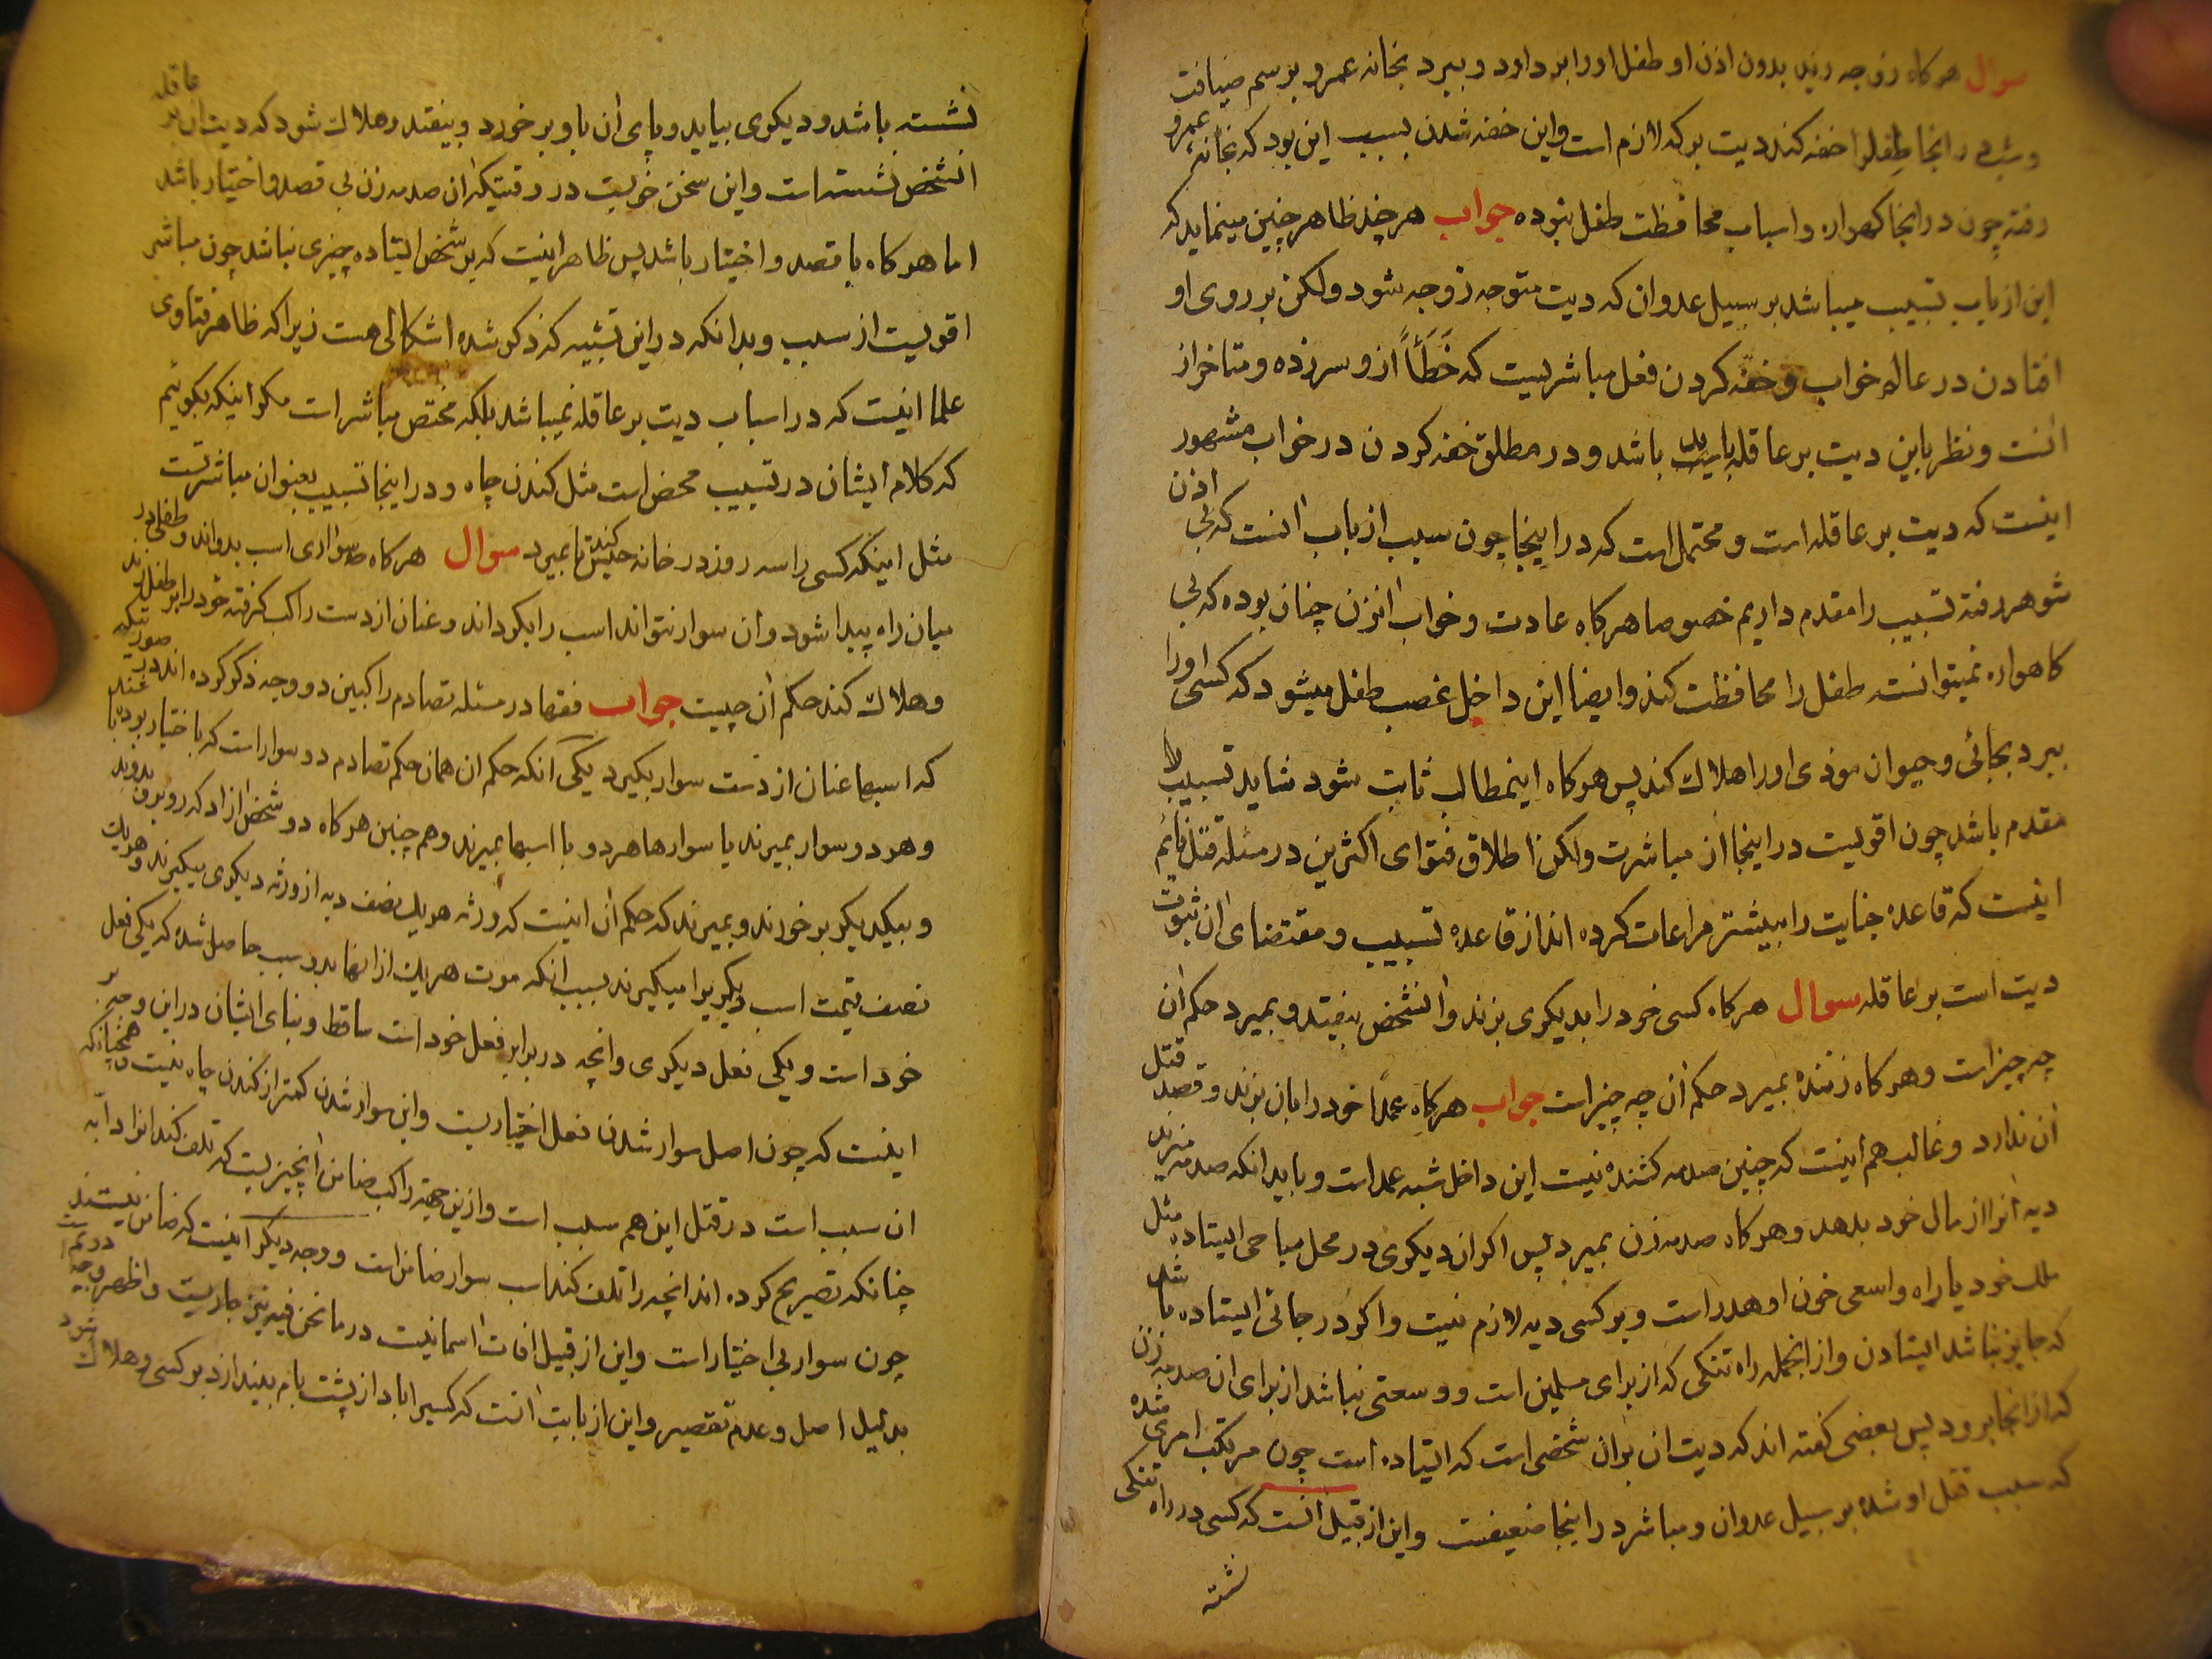 سوال هرکاه زوجه زید بدون اذن او طفل او را بردارد و ببرد بخانه عمرو برسم ضیافت
و شب در انجا طفلرا خفه کند دیت بر که لازم است و این خفه شدن بسبب این بود که بخانه عمرو
رفته چون در انجا کهواره و اسباب محافظت طفل نبوده جواب هر چند ظاهر چنین مینماید که
این از باب تسبیب میباشد بر سبیل عدوان که دیت متوجه زوجه شود ولکن بر روی او
افتادن در عالم خواب و خفه کردن فعل مباشریست که خَطَأً از و سرزده و متاخر از
انست و نظر باین دیت بر عاقله باید باشد و در مطلق خفه کردن در خواب مشهور
اینست که دیت بر عاقله است و محتمل است که در اینجا چون سبب از باب انست که بی اذن
شوهر رفته تسبیب را مقدم داریم خصوصا هرکاه عادت و خواب انزن چنان بوده که بی
کاهواره نمیتوانسته طفل را محافظت کند و ایضا این داخل غصب طفل میشود که کسی او را
ببرد بجائی و حیوان موذی او را هلاک کند پس هرکاه اینمطالب ثابت شود شاید تسبیب
مقدم باشد چون اقویست در اینجا از مباشرت ولکن اطلاق فتوای اکثرین در مسئله قتل نایم
اینست که قاعده جنایت را بیشتر مراعات کرده اند از قاعده تسبیب و مقتضای ان ثبوت
دیت است بر عاقله سوال هرکاه کسی خود را بدیکری بزند و انشخص بیفتد و بمیرد حکم ان
چه چیز است و هرکاه زننده بمیرد حکم ان چه چیز است جواب هرکاه عمدًا خود را بان بزند و قصد قتل
ان ندارد و غالب هم اینست که چنین صدمه کشنده نیست این داخل شبه عمد است و باید انکه صدمه میزند
دیه انرا از مال خود بدهد و هرکاه صدمه زن بمیرد پس اکر ان دیکری در محل مباحی ایستاده مثل
ملک خود یا راه واسعی خون او هدر است و بر کسی دیه لازم نیست و اکر در جائی ایستاده باشد
که جایز نباشد ایستادن و از انجمله راه تنکی که از برای مسلمین است و وسعتی نباشد از برای ان صدمه زن
که از انجا برود پس بعضی کفته اند که دیت ان بران شخصی است که ایستاده است چون مرتکب امری شده
که سبب قتل او شده بر سبیل عدوان و مباشر در اینجا ضعیفست و این از قبیل انست که کسی در راه تنکی
نشسته
نشسته باشد و دیکری بیاید و پای ان باو بر خورد و بیفتد و هلاک شود که دیت ان بر عاقله
انشخص نشسته است و این سخن خوبیست در وقتیکه ان صدمه زن بی قصد و اختیار باشد
اما هرکاه با قصد و اختیار باشد پس ظاهر اینست که بر شخص ایستاده چیزی نباشد چون مباشر
اقویست از سبب و بدانکه در این تشبیه که ذکر شده اشکالی هست زیرا که ظاهر فتاوی
علما اینست که در اسباب دیت بر عاقله نمیباشد بلکه مختص مباشر است مکر اینکه بکوئیم
که کلام ایشان در تسبیب محض است مثل کندن چاه و در اینجا تسبیب بعنوان مباشرتست
مثل اینکه کسی را سه روز در خانه حبس کنند تا بمیرد سوال هرکاه سواری اسب بدواند و طفلی در
میان راه پیدا شود و ان سوار نتواند اسب را بکرداند و عنان از دست راکب کرفته خود را بر طفل زند
و هلاک کند حکم ان چیست جواب فقها در مسئله تصادم راکبین دو وجه ذکر کرده اند در صورتیکه
که اسبها عنان از دست سوار بکیرد یکی آنکه حکم ان همان حکم تصادم دو سوار است که باختیار بوده باشند
و هر دو سوار بمیرند یا سوارها هر دو با اسبها بمیرند و هم چنین هرکاه دو شخص ازاد که روبرو بدوند
و بیکدیکر برخورند و بمیرند که حکم ان اینست که ورثه هر یک نصف دیه از ورثه دیکری میکیرند و هر یک
نصف قیمت اسب دیکریرا میکیرند بسبب انکه موت هر یک از انها بدو سبب حاصل شده که یکی فعل
خود است و یکی فعل دیکری و انچه در برابر فعل خود است ساقط و بنای ایشان در این وجه بر
اینست که چون اصل سوار شدن فعل اختیاریست و این سوار شدن کمتر از کندن چاه نیست و همچنانکه
ان سبب است در قتل این هم سبب است و از این جهة راکب ضامن انچیزیست که تلف کند انرا دابّه
چنانکه تصریح کرده اند انچه را تلف کند اسب سوار ضامن است و وجه دیکر اینست که ضامن نیستند
چون سوار بی اختیار است و این از قبیل افات اسمانیست در ما نحن فیه نیز جاریست و اظهر وجه دویم است
بدلیل اصل و عدم تقصیر و این از بابت انست که کسیرا باد از پشت بام بیندازد بر کسی و هلاک شود